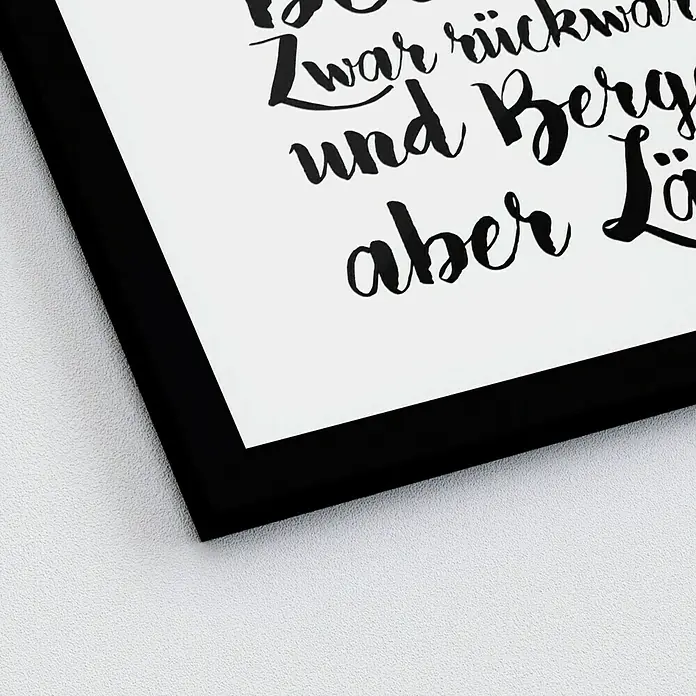 Zwar rückwär
und Berg
aber Lä